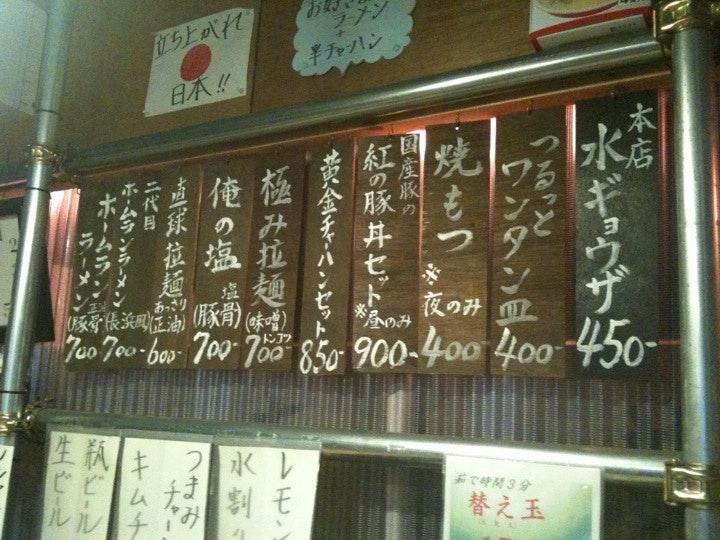 立ち上がれ
日本!!
ラーメン
+
半チャーハン
本店
水ギョウザ
450-
つるっと
ワンタン皿
400-
焼もつ
※夜のみ
400-
国産豚の
紅の豚丼セット
※昼のみ
900-
黄金チャーハンセット
850-
極み拉麺
(味噌)
トンコツ
700-
俺の塩
塩
(豚骨)
700-
直球拉麺
あっさり
(正油)
600-
二代目
ホームランラーメン
(長浜風)
700-
ホームラン
ラーメン
(豚骨)
700
レモン
水割り
つまみ
チャー
キムチ
瓶ビール
生ビール
茹で時間3分
替え玉